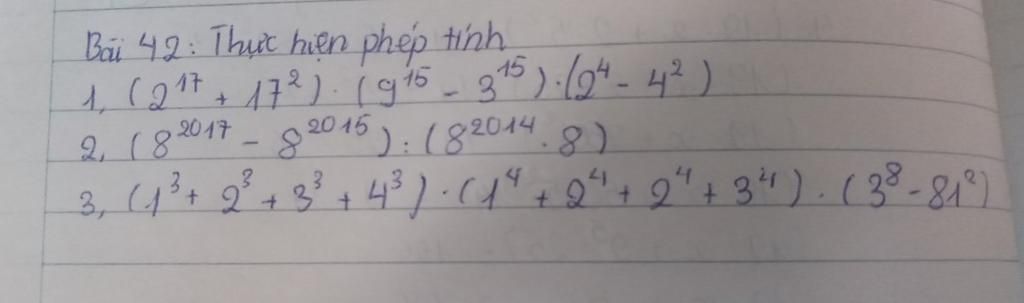 Bài 42: Thực hiện phép tính
1, (2¹⁷ + 17²) · (9¹⁵ - 3¹⁵) · (2⁴ - 4²)
2, (8²⁰¹⁷ - 8²⁰¹⁵) : (8²⁰¹⁴ . 8)
3, (1³ + 2³ + 3³ + 4³) · (1⁴ + 2⁴ + 2⁴ + 3⁴) · (3⁸ - 81²)